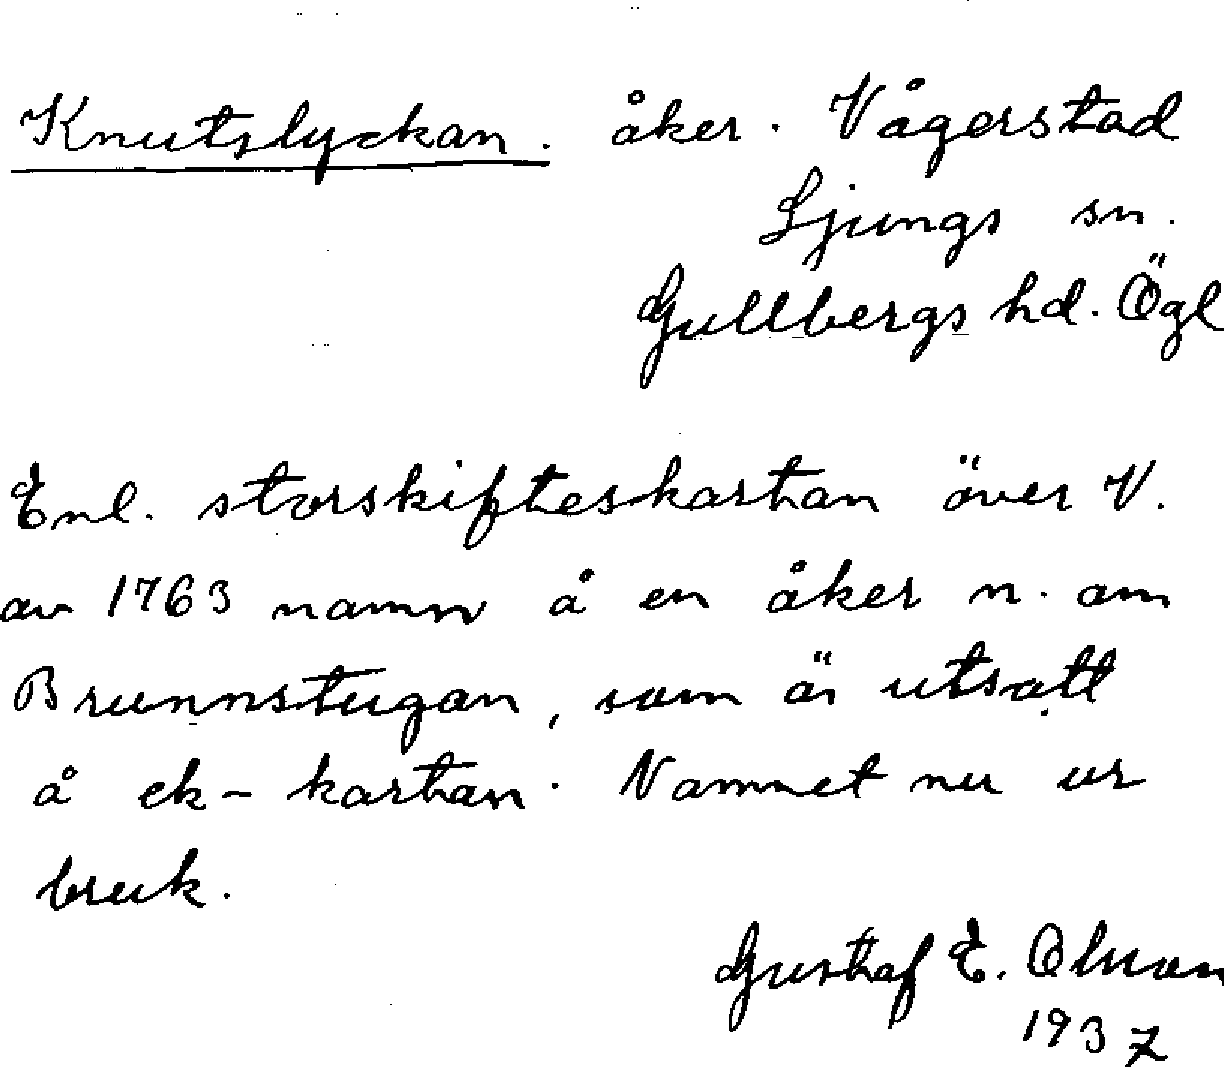 Knutslyckan. åker. Vågerstad
Ljungs sn.
Gullbergs hd. Ögl
Enl. storskifteskartan över V.
av 1763 namn å en åker n. om
Brunnstugan, som är utsatt
å ek-kartan. Namnet nu ur
bruk.
Gustaf E. Olsson
1937